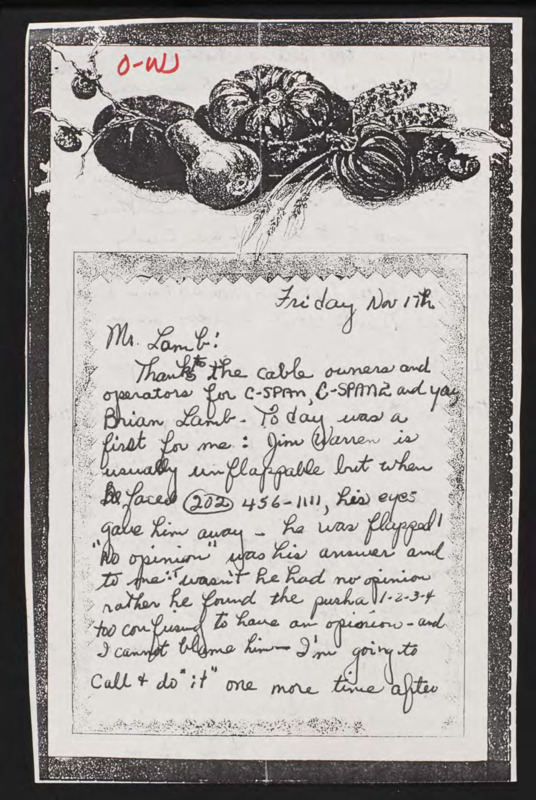 O-W
Friday Nov 17th
Mr. Lamb:
Thanks to the cable owners and
operators for C-SPAN, C-SPAN2 and you
Brian Lamb - Today was a
first for me: Jim Warren is
usually unflappable but when
he faced (202) 456-1111, his eyes
gave him away - he was flapped!
"No opinion" was his answer and
to me: "wasn't he had no opinion
rather he found the pusha 1-2-3-4
too confusing to have an opinion - and
I cannot blame him - I'm going to
call & do "it" one more time after